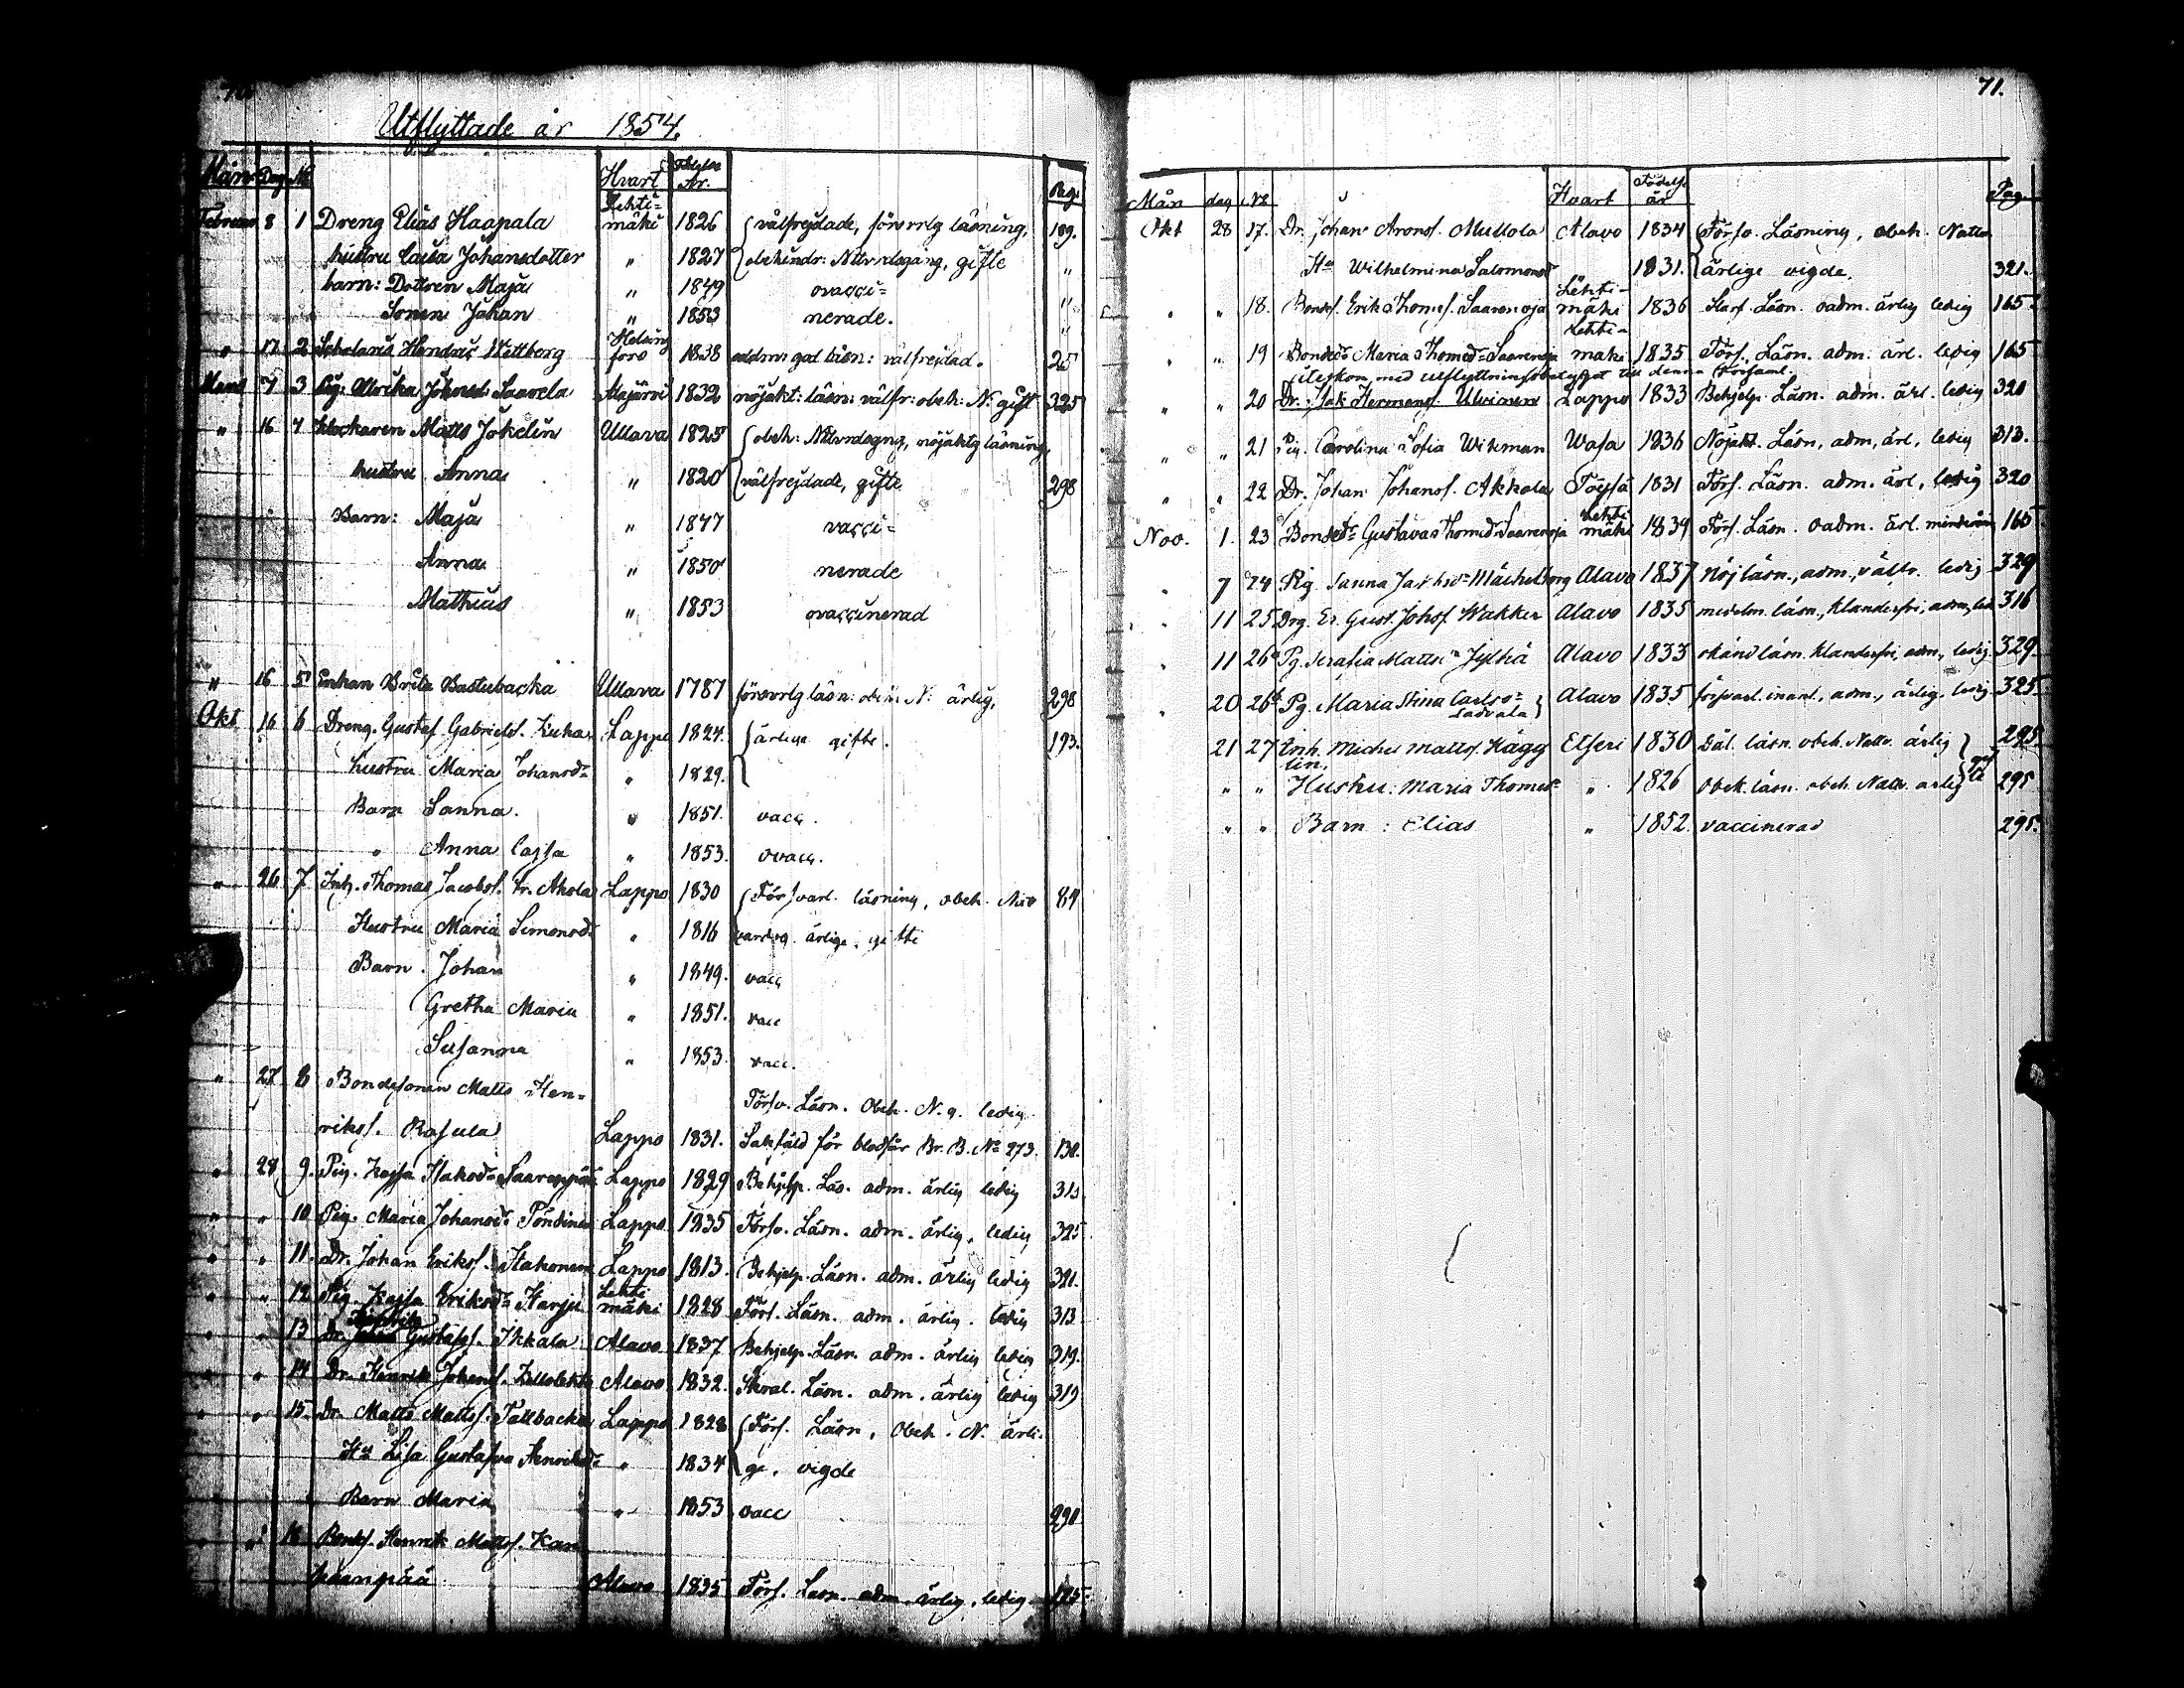 Utflyttade år 1854.
Mån Dag No Hvart Födelse År. Pag.
Februar 8 1 Dreng Elias Haapala Lehti-mäki 1826 försvrlg läsning, 189.
hustru Caisa Johansdotter " 1827 gifte "
barn: Dottren Maja " 1849 ovacci= "
Sonen Johan " 1853 nerade. "
" 17 2 Scholaris Hendric Wettberg Helsingfors 1838 god läsn: välfrejdad. 25
Mars 7 3 Pig: Ulrika Johnsd: Saarela Alajärvi 1832 nöjakt: läsn: välfr: obeh: N: gift 325
" 16 4 Klockaren Matts Jokelin Ullava 1825 nöjaktg läsning,
hustru Anna " 1820 välfrejdade, gifte 298
Barn: Maja " 1847 vacci=
Anna " 1850 nerade
Mathias " 1853 ovaccinerad
" 16 5 Enkan Brita Bastubacka Ullava 1787 försvrlg läsn: N: ärlig, 298
Okt 16 6 Dreng. Gustaf Gabrielss. Lappo 1824. ärlige gifte. 193.
hustru Maria Johansdr " 1829.
Barn Sanna. " 1851. vacc.
" Anna Cajsa " 1853. ovacc.
" 26 7. Thomas Jacobss. Akola Lappo 1830 Försvarl. läsning, obeh. 84
Hustru Maria Simonsdr " 1816 ärlige, gifte
Barn. Johan " 1849. vacc
Gretha Maria " 1851. vacc
Susanna " 1853. vacc.
" 27 8 Bondesonen Matts Hen=
Försv. Läsn. Obeh. N. g. ledig
rikss. Rasula Lappo 1831. Sakfäld för Br. B. No 273. 130.
" 28 9. Pig. Kajsa Lappo 1829 Behjelp. Läs. adm. ärlig ledig
" " 10 Pig. Maria Johansdr Lappo 1835 Försv. Läsn. adm. ärlig, ledig 325
" " 11. Dr. Johan Erikss. Hakonen Lappo 1813. Behjelp. Läsn. adm. ärlig ledig 321.
" " 12 Pig. Kajsa Eriksdr Harju Lehtimäki 1828 Förs. Läsn. adm. ärlig. ledig 313
" " 13 Dr. Gustafss. Ikkala Alavo 1837 Behjelp. Läsn. adm. ärlig ledig 319.
" " 14 Dr. Henrik Johanss. Alavo 1832. Läsn. adm. ärlig ledig 319
" " 15. Dr. Matts Mattss. Tallbacka Lappo 1828 Förs. Läsn, Obeh. N. ärli-
Hu Lisa Gustafva Henriksdr " 1834 ge, vigde
Barn Maria " 1853 vacc 290
" " 16 Bonds. Henrik Mattss. Kan
kaanpää Alavo 1835 Förs. Läsn. adm. ärlig, ledig
71.
Mån dag No Hvart Födelse år Pag.
Okt 28 17. Dr. Johan Aronss. Mullola Alavo 1834 Försv. Läsning, obeh. Nattv
Hu Wilhelmina Salomonsdr 1831. ärlige vigde. 321.
" " 18. Bondes. Erik Thomass. Saarenoja Lehti-mäki 1836 Läsn. oadm. ärlig ledig 165
" " 19 Bondedr Maria Thomasdr Saarenoja Lehti-mäki 1835 Förs. Läsn. adm. ärl. ledig 165
med utflyttningsbetyget till denna församl.
" " 20 Dr. Isak Hermanss. Ulvinen Lappo 1833 Behjelp. Läsn. adm. ärl. ledig 320
" " 21 Pig. Carolina Sofia Wikman Wasa 1836 Nöjakt. Läsn, adm, ärl, ledig 313.
" " 22 Dr. Johan Johanss. Akkola Töysä 1831 Förs. Läsn. adm. ärl, ledig 320
Nov. 1. 23 Bondedr Gustava Thomasdr Saarenoja Lehti-mäki 1839 Förs. Läsn. oadm. ärl. 165
" 7 24 Pig. Sanna Alavo 1837 Nöj läsn., adm., välfr. ledig 329
" 11 25 Drg. Er. Gust. Johss. Wakker Alavo 1835 medelm. läsn, klanderfri, adm, led 316
" 11 26a Pg. Serafia Mattsdr Jylhä Alavo 1833 läsn. klanderfri, adm, ledig 329.
" 20 26b Pg. Maria Stina Carlsdr Ladvala Alavo 1835 försvarl. inanl, adm., ärlig, ledig 325.
21 27 Inh. Michel Mattss. Hägglin. Etseri 1830 Dål. läsn. obeh. Nattv. ärlig 295.
" " Hustru: Maria Thomasdr " 1826 Obek. läsn. obeh. Nattv. ärlig gifte 295
" " Barn: Elias " 1852. vaccinerad 295.